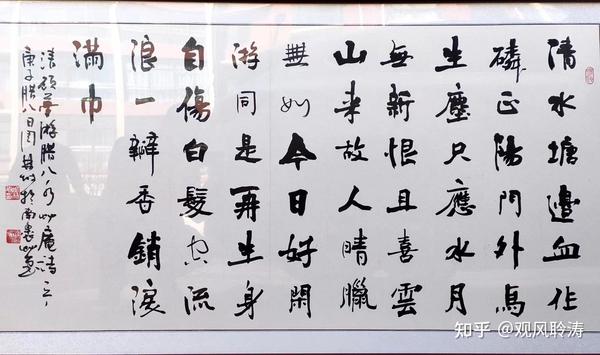 清水塘邊血作
磷正陽門外馬
生塵只應水月
無新恨且喜雲
山來故人晴臘
無如今日好閑
游同是再生身
自傷白髮空流
浪一瓣香銷淚
滿巾
清顧夢游臘八水草庵詩之一
庚子臘八日周於南
知乎 @观风聆涛